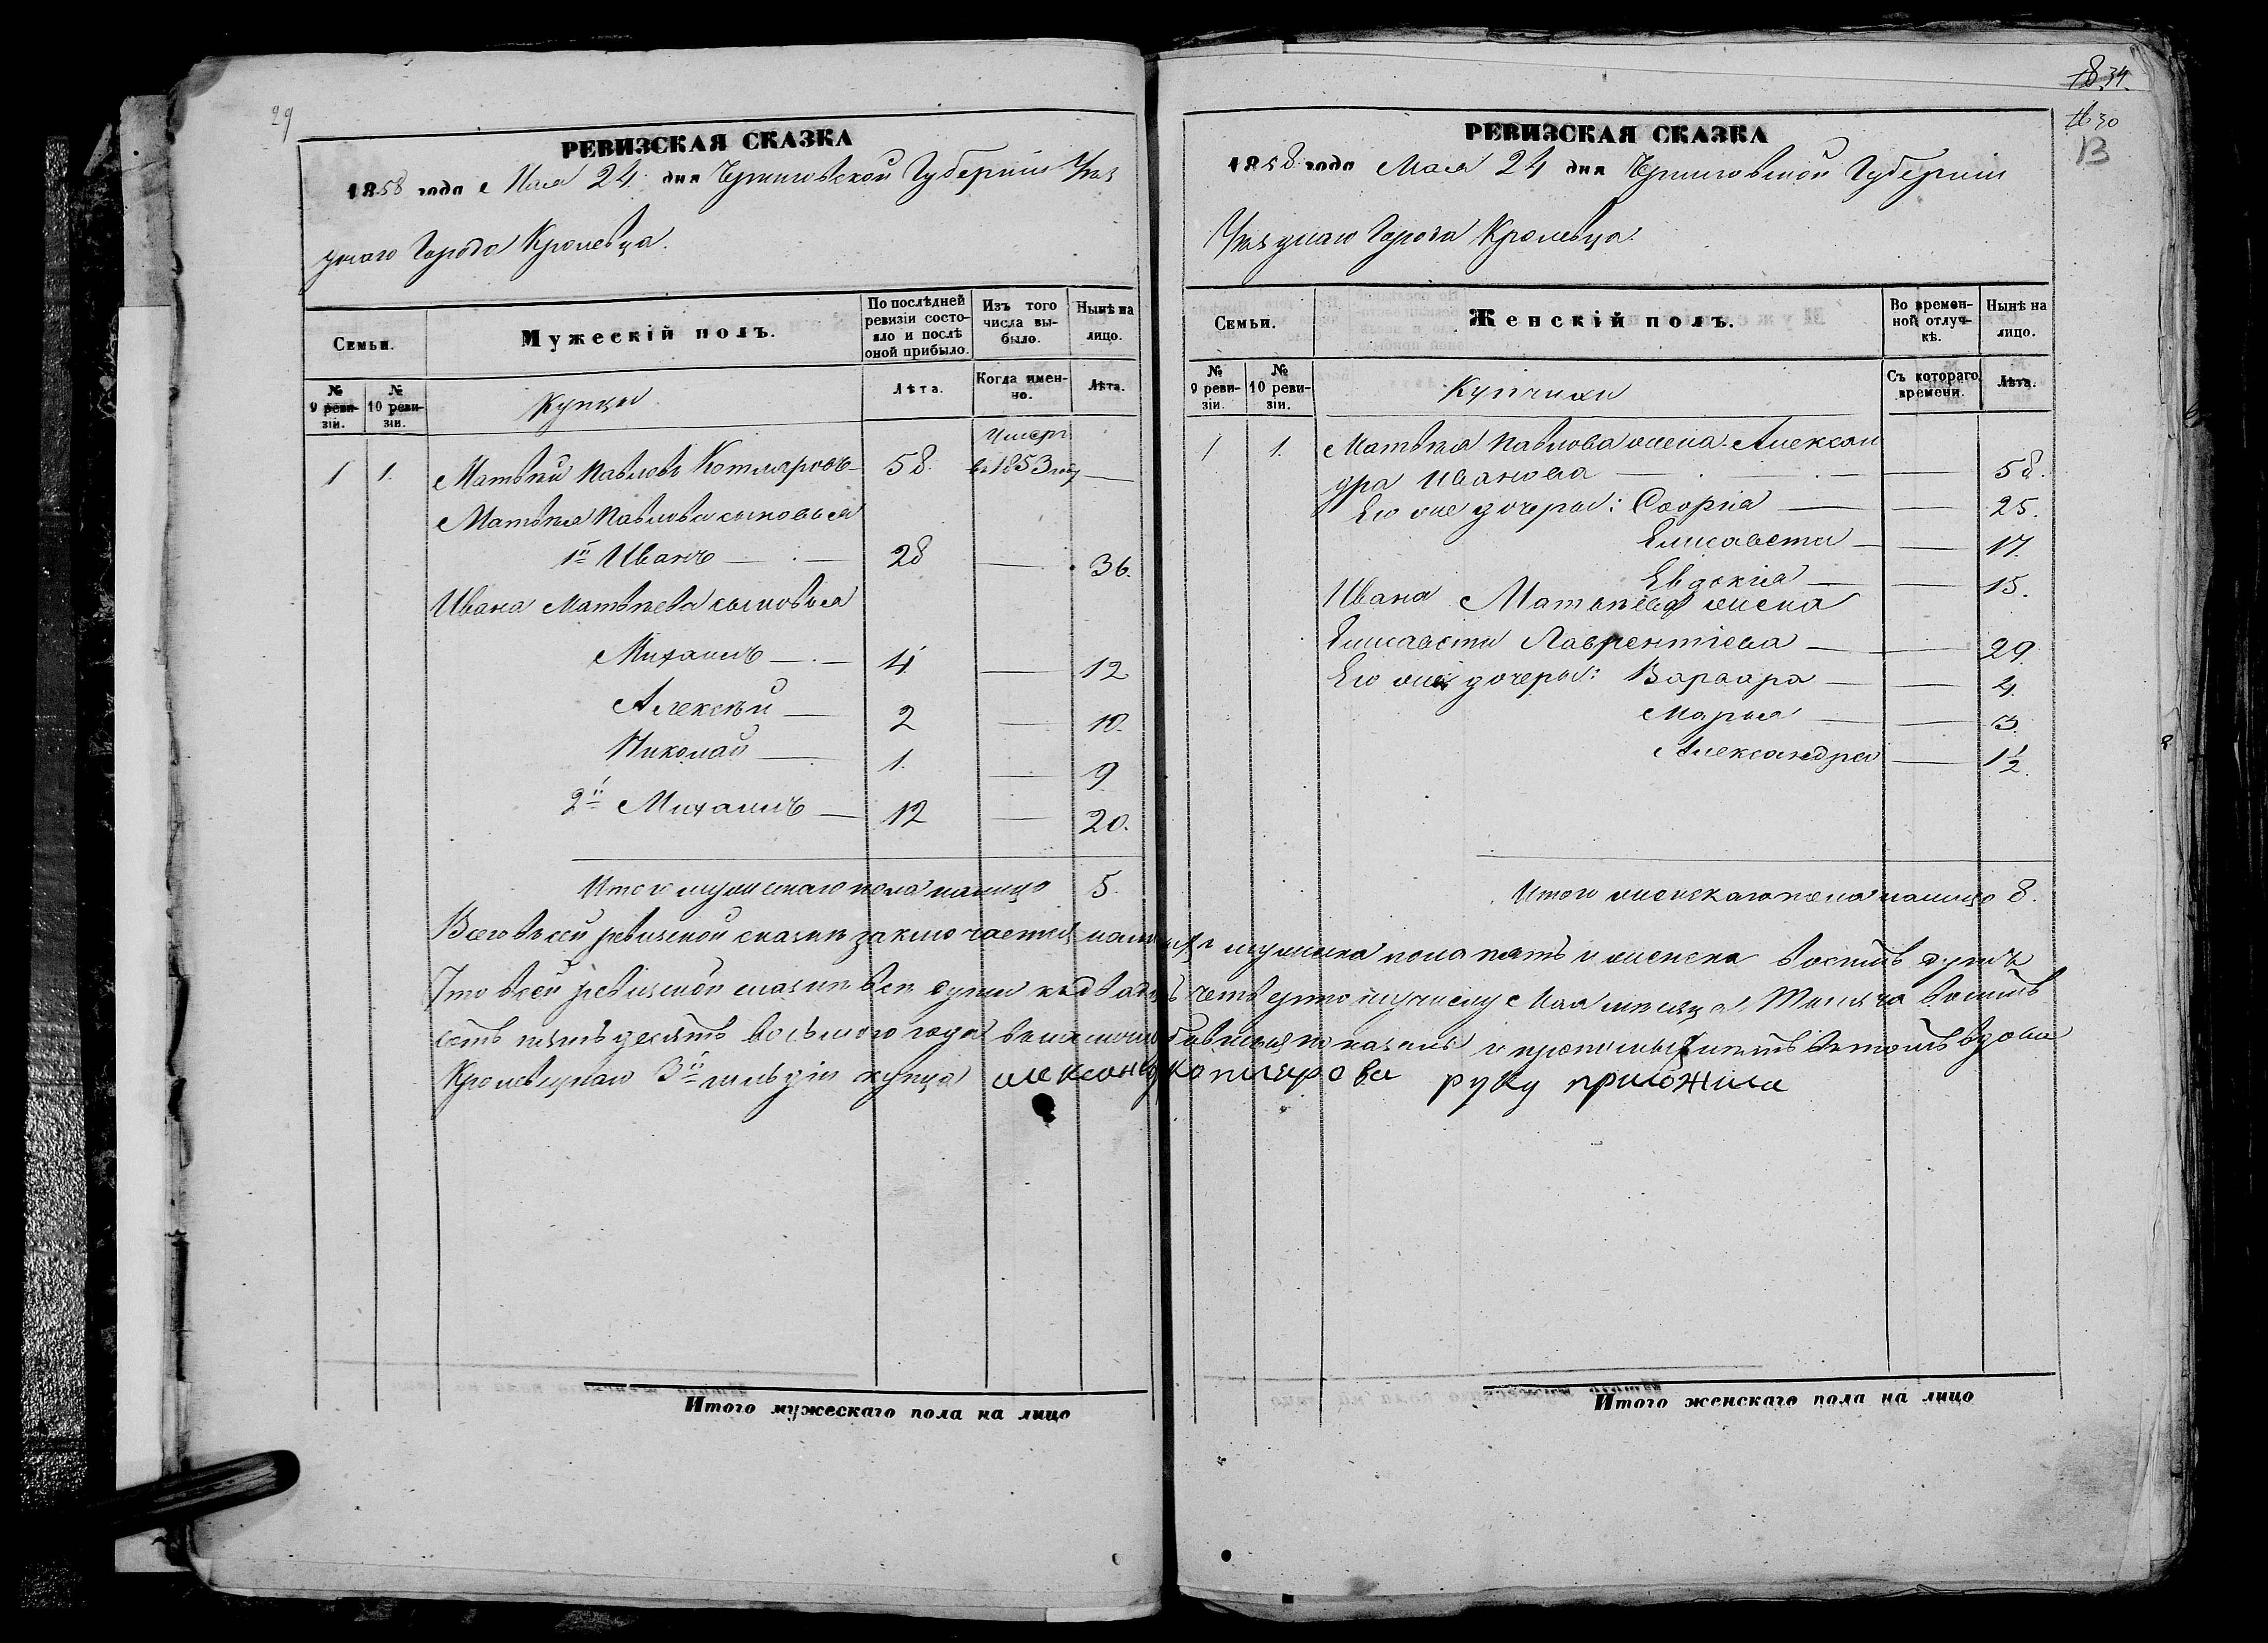 29
РЕВИЗСКАЯ СКАЗКА
1858 года Мая 24 дня Черниговской Губернии Уѣз
днаго Города Кролевца.
Семьи.
Мужескій полъ.
По послѣдней ревизіи состояло и послѣ оной прибыло.
Изъ того числа выбыло.
Нынѣ на лицо.
№ 9 ревизіи.
№ 10 ревизіи.
Купцы
Лѣта.
Когда именно.
Лѣта.
1 1. Матвѣй Павловъ Котляровъ 58. Умеръ въ 1853 году —
Матвѣя Павлова сыновья
1й Иванъ — 28 — 36.
Ивана Матвѣева сыновья
Михаилъ — 4 — 12
Алексѣй — 2 — 10.
Николай — 1. — 9
2й Михаилъ — 12 — 20.
Итого мужескаго пола налицо 5.
РЕВИЗСКАЯ СКАЗКА
1858 года Мая 24 дня Черниговской Губернии
Уѣзднаго Города Кролевца.
34.
30
13
Семьи.
Женскій полъ.
Во временной отлучкѣ.
Нынѣ на лицо.
№ 9 ревизіи.
№ 10 ревизіи.
Купчихи
Съ котораго времени.
Лѣта.
1 1. Матвѣя Павлова жена Алексан
дра Иванова — — 58.
Его же дочери: Софія — — 25.
Елисавета — — 17.
Евдокія — — 15.
Ивана Матвѣева жена
Елисавета Лаврентіева — — 29.
Его же дочери: Варвара — — 4.
Марья — — 3.
Александра — 1½.
Итого женскаго пола налицо 8.
Всего въ сей ревизской сказкѣ заключается налицо мужеска пола пять и женска восемь душъ
Что въ сей ревизской сказкѣ всѣ души къ двадцать четвертому числу Мая мѣсяца Тысяча восемь
сотъ пятьдесятъ восьмого года показаны и пропо нѣтъ въ томъ вдова
Кролевецкаго 3й гильдіи купца Котлярова руку приложила
Итого мужескаго пола на лицо
Итого женскаго пола на лицо